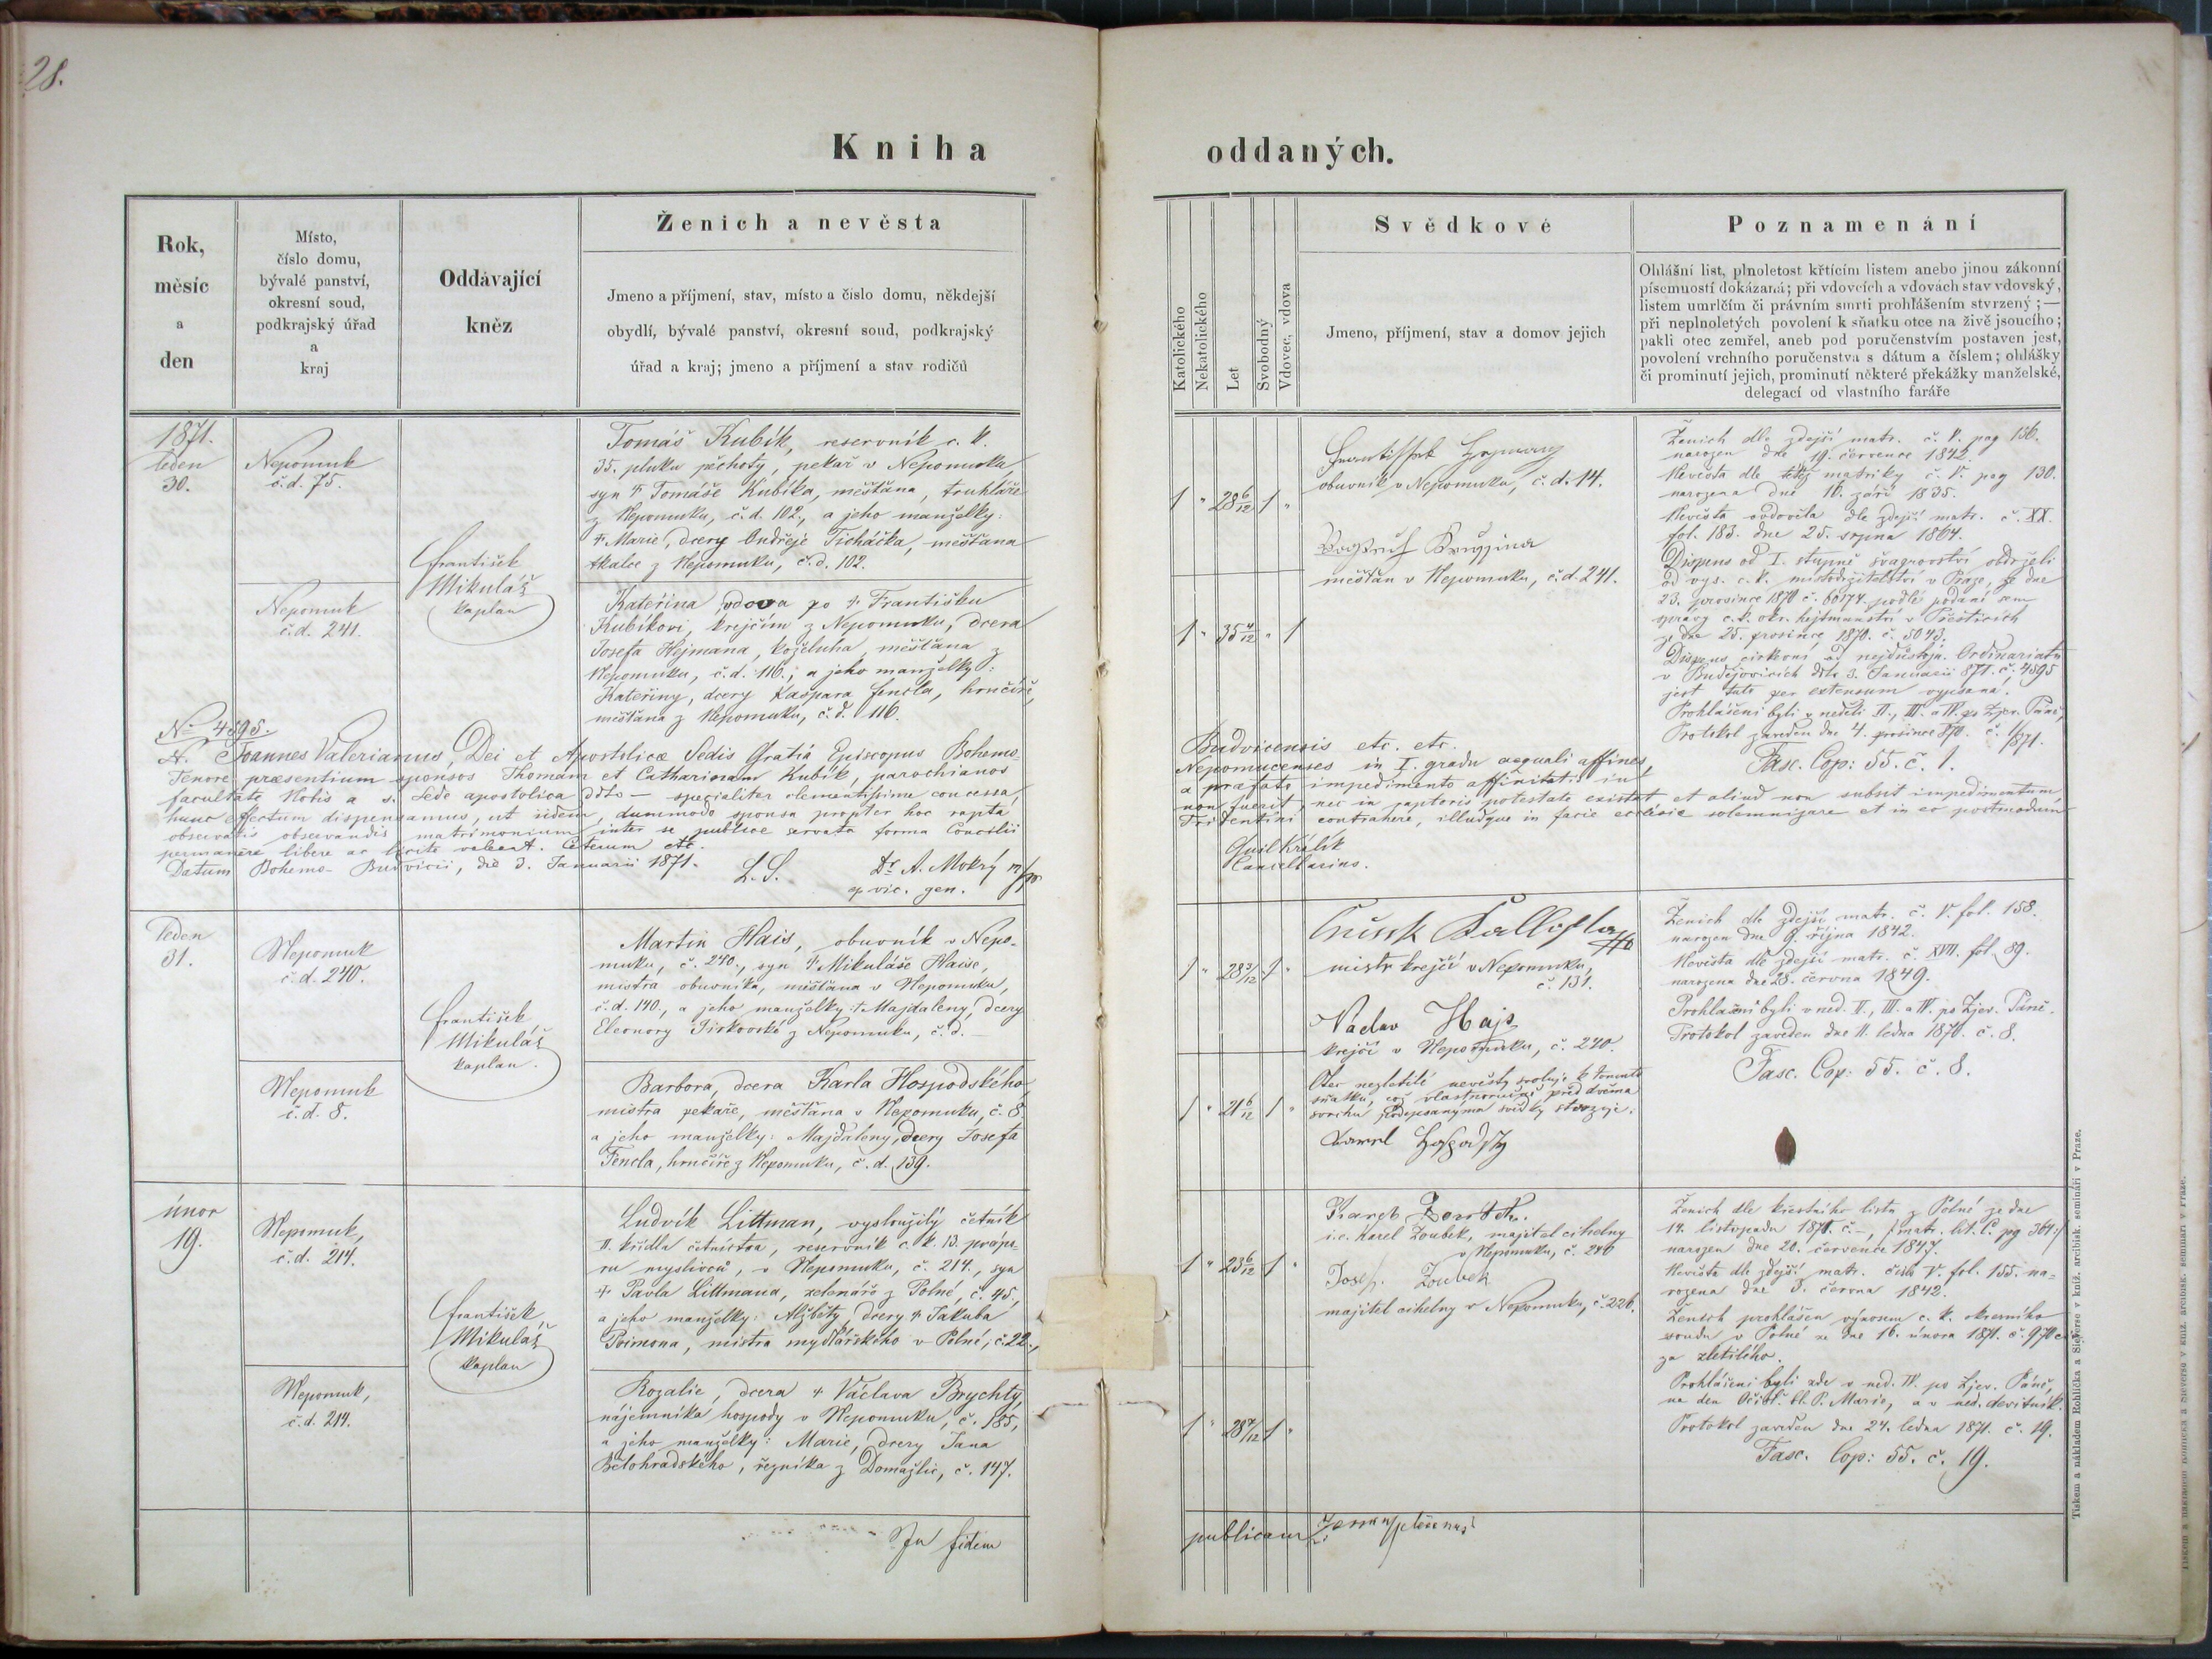 28.
Kniha oddaných.
Rok,
měsíc
a
den
Místo,
číslo domu,
bývalé panství,
okresní soud,
podkrajský úřad
a
kraj
Oddávající
kněz
Ženich a nevěsta
Jmeno a příjmení, stav, místo a číslo domu, někdejší
obydlí, bývalé panství, okresní soud, podkrajský
úřad a kraj; jmeno a příjmení a stav rodičů
Katolického
Nekatolického
Let
Svobodný
Vdovec, vdova
Svědkové
Jmeno, příjmení, stav a domov jejich
Poznamenání
Ohlášní list, plnoletost křtícím listem anebo jinou zákonní
písemností dokázaná; při vdovcích a vdovách stav vdovský,
listem umrlčím či právním smrti prohlášením stvrzený; —
při neplnoletých povolení k sňatku otce na živě jsoucího;
pakli otec zemřel, aneb pod poručenstvím postaven jest,
povolení vrchního poručenstva s dátum a číslem; ohlášky
či prominutí jejich, prominutí některé překážky manželské,
delegací od vlastního faráře
1871.
leden
30.
Nepomuk
č.d. 75.
Nepomuk
č.d. 241.
František
Mikuláš
kaplan
Tomáš Kubík, reservník c. k.
35. pluku pěchoty, pekař v Nepomuku,
syn † Tomáše Kubíka, měšťana, truhláře
z Nepomuku, č.d. 102., a jeho manželky:
† Marie, dcery Ondřeje Ticháčka, měšťana
tkalce z Nepomuku, č.d. 102.
Kateřina, vdova po † Františku
Kubíkovi, krejčím z Nepomuku, dcera
Josefa Hejmana, koželuha, měšťana z
Nepomuku, č.d. 116., a jeho manželky:
Kateřiny, dcery Kašpara Fencla, hrnčíře,
měšťana z Nepomuku, č.d. 116.
1 " 28 6/12 1 "
1 " 35 4/12 " 1
obuvník v Nepomuku, č.d. 14.
měšťan v Nepomuku, č.d. 241.
Ženich dle zdejší matr. č. V. pag 156.
narozen dne 19. července 1842.
Nevěsta dle též matriky č. V. pag 130.
narozena dne 16. září 1835.
Nevěsta ovdověla dle zdejší matr. č. XX.
fol. 183. dne 25. srpna 1864.
Dispens od I. stupně švagrovství obdrželi
od vys. c. k. místodržitelství v Praze, ze dne
23. prosince 1870 č. 60174. podlé podání sem
správy c.k. okr. hejtmanství v Přešticích
ze dne 25. prosince 1870. č. 5043.
Dispens církevní od nejdůstojn. Ordinariatu
v Budějovicích ddto 3. Januarii 871. č. 4895
jest tuto per extensum vypsána.
Prohlášeni byli v neděli II., III. a IV. po Zjev. Páně,
Protokol zaveden dne 4. prosince 870. č. 1/1871.
Fasc. Cop: 55. č. 1.
No 4895.
N. Joannes Valerianus, Dei et Apostolicæ Sedis Gratiâ Episcopus Bohemo-Budvicensis etc. etc.
Tenore præsentium sponsos Thomam et Catharinam Kubík, parochianos Nepomucenses in I. gradu aequali affines,
facultate Nobis a s. Sede apostolica ddto — specialiter clementissime concessa, a præfato impedimento affinitatis in
hunc effectum dispensamus, ut iidem, dummodo sponsa propter hoc rapta non fuerit, nec in raptoris potestate existat et aliud non subsit impedimentum,
observatis observandis matrimonium inter se publice servata forma Concilii Tridentini contrahere, illudque in facie ecclesie solemnizare et in eo postmodum
permanere libere ac licite valeant. Ceterum etc.
Datum Bohemo-Budvicii, die 3. Januarii 1871.
L.S.
Dr A. Mokrý m/p
vic. gen.
Guil Králík
Cancellarius.
leden
31.
Nepomuk
č.d. 240.
Nepomuk
č.d. 8.
František
Mikuláš
kaplan.
Martin Hais, obuvník v Nepo-
muku, č. 240., syn † Mikuláše Haise,
mistra obuvníka, měšťana v Nepomuku,
č.d. 140., a jeho manželky: † Majdaleny, dcery
Eleonory Jirkovské z Nepomuku, č.d. —
Barbora, dcera Karla Hospodského,
mistra pekaře, měšťana v Nepomuku, č. 8.
a jeho manželky: Majdaleny, dcery Josefa
Fencla, hrnčíře z Nepomuku, č.d. 139.
1 " 28 3/12 1 "
1 " 21 6/12 1 "
mistr krejčí v Nepomuku,
č. 131.
Vaclav Hajs
krejčí v Nepomuku, č. 240.
Otec nezletilé nevěsty svoluje k tomuto
sňatku, což vlastnoručně před dvěma
svrchu podepsanýma svědky stvrzuje:
Ženich dle zdejší matr. č. V. fol. 158.
narozen dne 9. října 1842.
Nevěsta dle zdejší matr. č. XVII. fol. 89.
narozena dne 28. června 1849.
Prohlášeni byli v ned. II., III. a IV. po Zjev. Páně.
Protokol zaveden dne 11. ledna 1870. č. 8.
Fasc. Cop: 55. č. 8.
únor
19.
Nepomuk,
č.d. 214.
Nepomuk,
č.d. 214.
František
Mikuláš
kaplan
Ludvík Littman, vysloužilý četník
II. křídla četnictva, reservník c. k. 13. prápo-
ru myslivců, v Nepomuku, č. 214., syn
† Pavla Littmana, zelenáře z Polné, č. 45.,
a jeho manželky: Alžběty, dcery † Jakuba
mistra mydlářského v Polné, č. 22.,
Rozalie, dcera † Václava Brychty,
nájemníka hospody v Nepomuku, č. 185,
a jeho manželky: Marie, dcery Jana
Bělohradského, řezníka z Domažlic, č. 147.
1 " 23 6/12 1 "
1 " 28 7/12 1 "
i.e. Karel Zoubek, majitel cihelny
v Nepomuku, č. 226
Josef Zoubek
majitel cihelny v Nepomuku, č. 226.
Ženich dle křestního listu z Polné ze dne
14. listopadu 1870. č. —, /: matr. lit. C. pg 364:/
narozen dne 20. července 1847.
Nevěsta dle zdejší matr. číslo V. fol. 155. na-
rozena dne 3. června 1842.
Ženich prohlášen výnosem c. k. okresního
soudu v Polné ze dne 16. února 1871. č. 970
za zletilého.
Prohlášeni byli zde v ned. IV. po Zjev. Páně,
na den Očišť. bl. P. Marie, a v ned. devítník.
Protokol zaveden dne 24. ledna 1871. č. 19.
Fasc. Cop: 55. č. 19.
In fidem publicam
Tiskem a nákladem Rohlíčka a Sieverse v kníž. arcibisk. semináři v Praze.